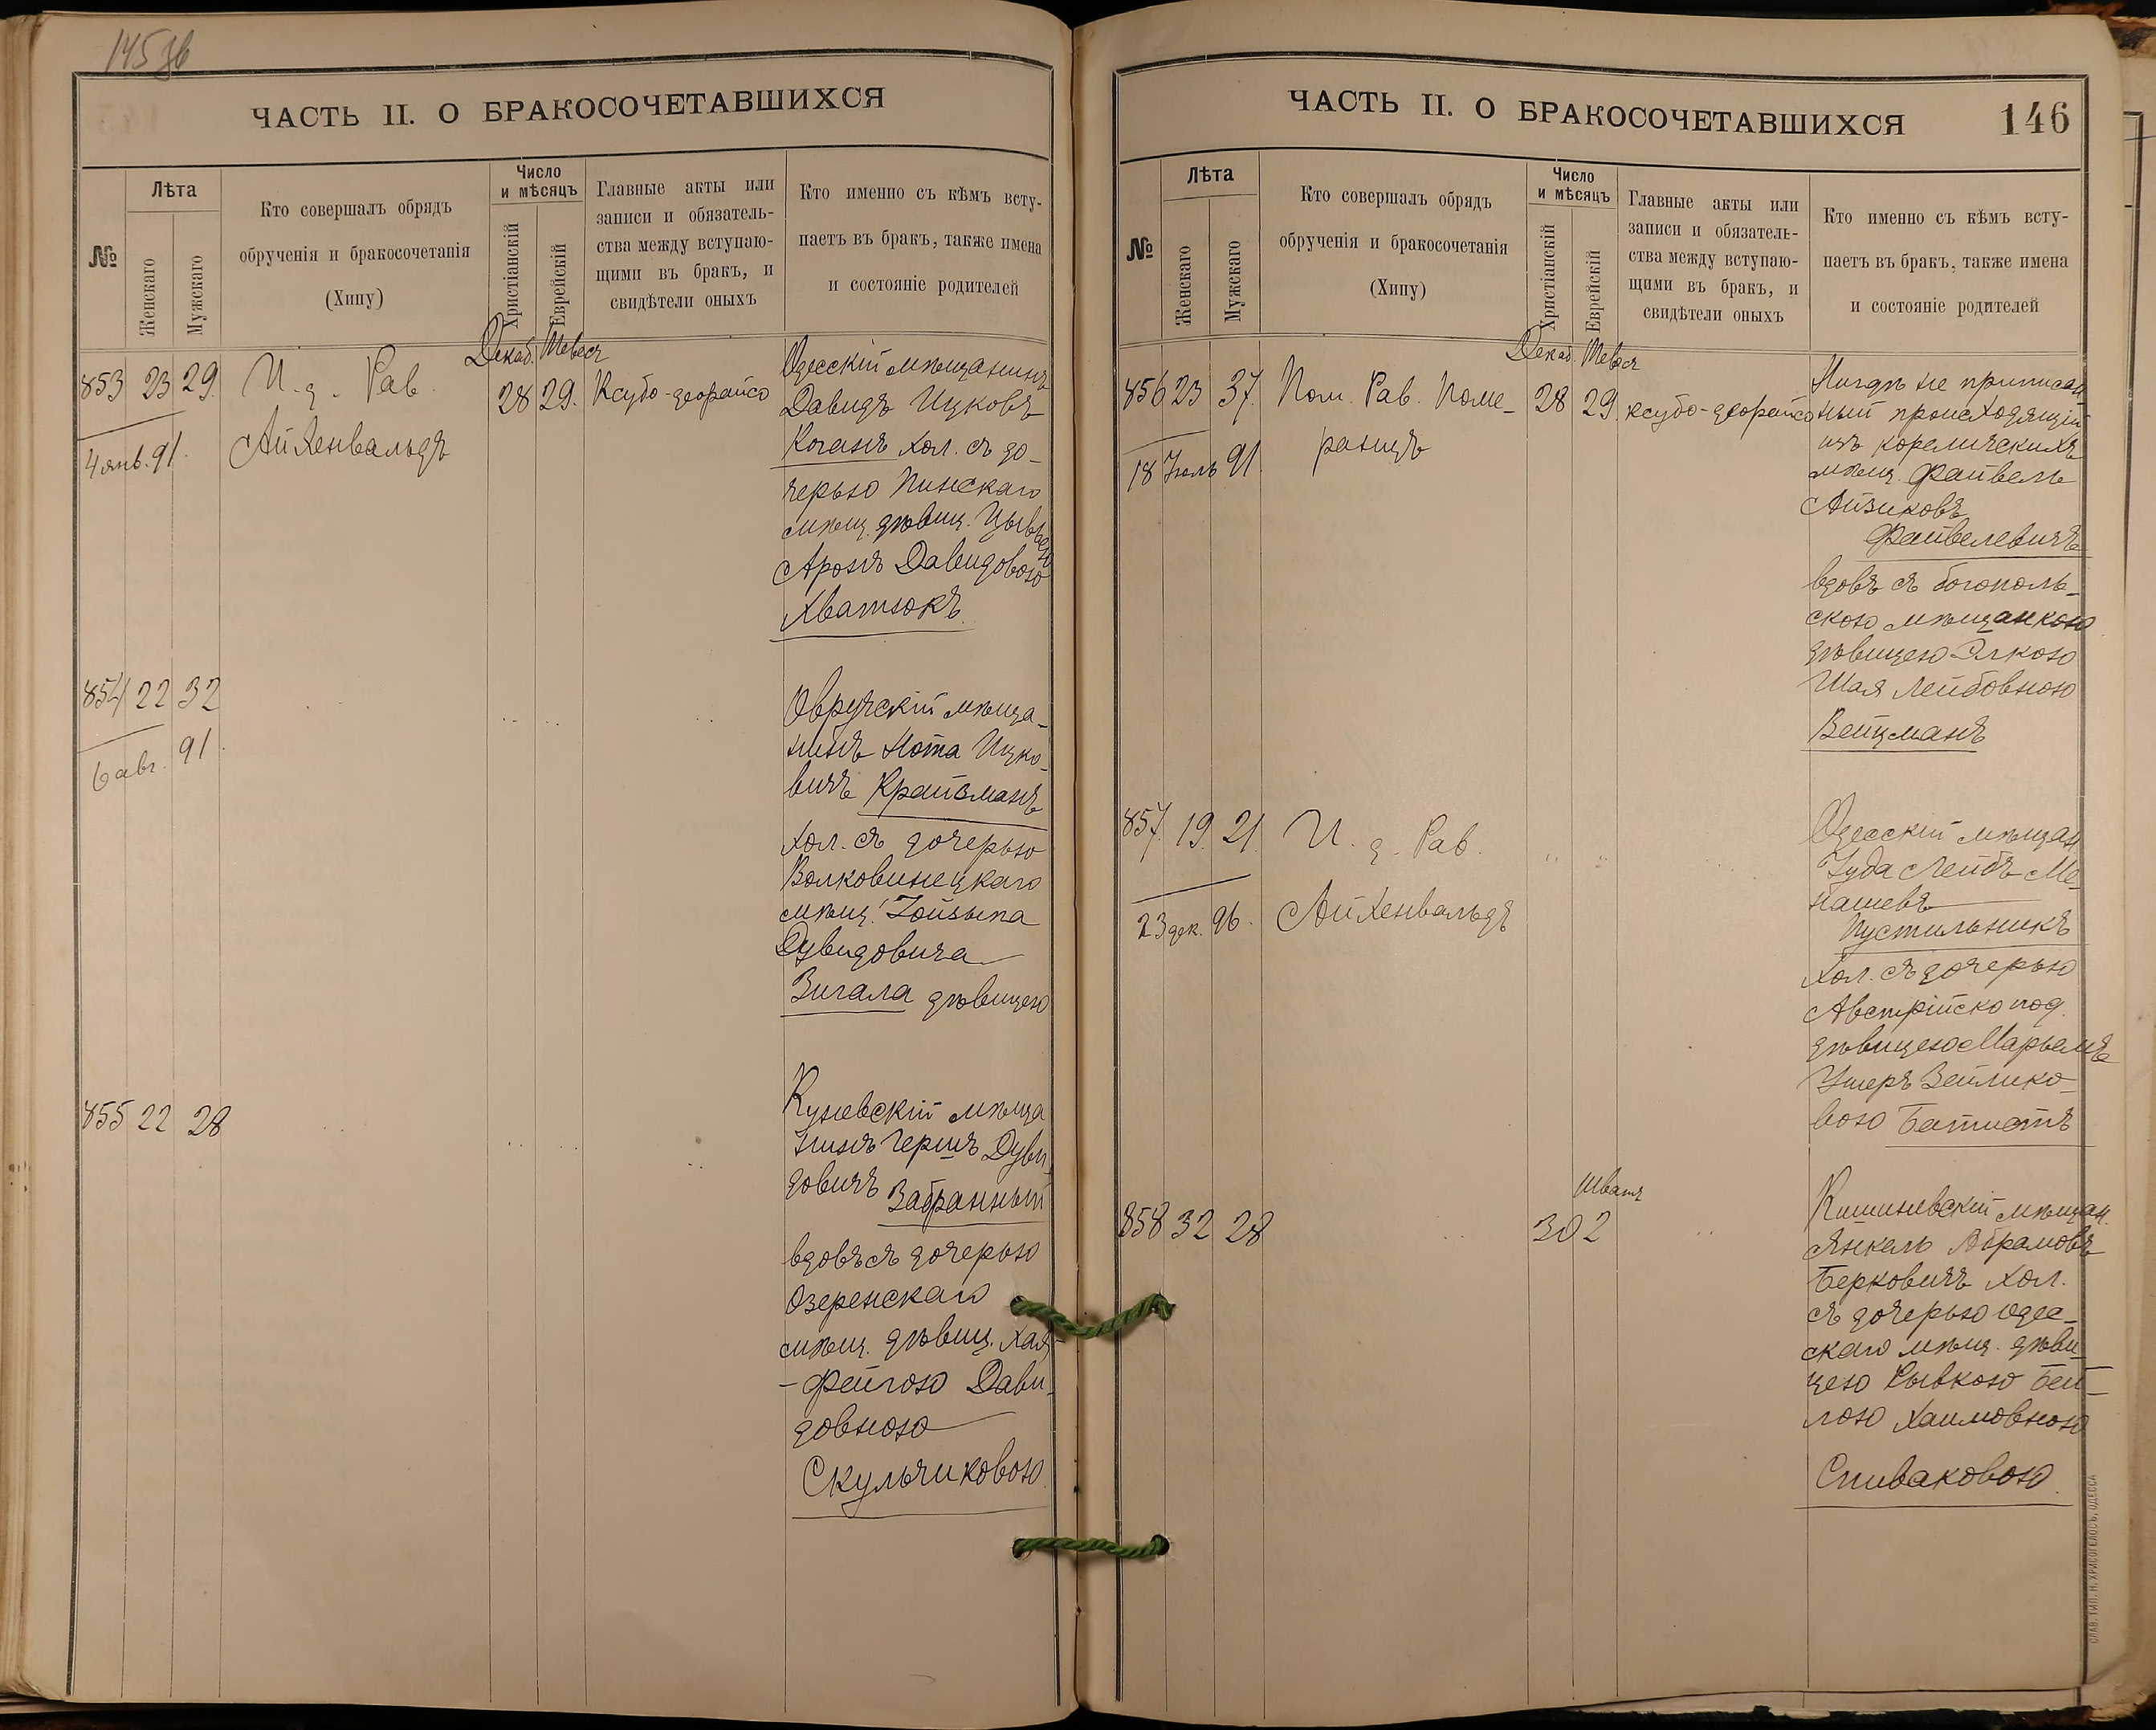 145 об
ЧАСТЬ II. О БРАКОСОЧЕТАВШИХСЯ
№
Лѣта
Женскаго
Мужскаго
Кто совершалъ обрядъ
обрученія и бракосочетанія
(Хипу)
Число
и мѣсяцъ
Христіанскій
Еврейскій
Главные акты или
записи и обязатель-
ства между вступаю-
щими въ бракъ, и
свидѣтели оныхъ
Кто именно съ кѣмъ всту-
паетъ въ бракъ, также имена
и состояніе родителей
Декаб. Тевесъ
853 23 29. И. д. Рав. 28 29. Ксубо-деорайсо
4 янв. 91. Айхенвальдъ
Одесскій мѣщанинъ
Давидъ Ицковъ
Коганъ хол. съ до-
черью Пинскаго
мѣщ. дѣвиц. Цывьею
Аронъ Давидовою
Хватнокъ.
854 22 32
6 авг. 91.
Овручскій мѣща-
нинъ Нота Ицко-
вичъ Крайзманъ
хол. съ дочерью
Волковинецкаго
мѣщ. Іойзыпа
Дувидовича
Зигала дѣвицею
855 22 28
Куневскій мѣща
нинъ Гершъ Дуви-
довичъ Забранный
вдовъ съ дочерью
Озеренскаго
мѣщ. дѣвиц. Хая-
-Фейгою Дави-
довною
Скульчиковою
ЧАСТЬ II. О БРАКОСОЧЕТАВШИХСЯ
146
№
Лѣта
Женскаго
Мужскаго
Кто совершалъ обрядъ
обрученія и бракосочетанія
(Хипу)
Число
и мѣсяцъ
Христіанскій
Еврейскій
Главные акты или
записи и обязатель-
ства между вступаю-
щими въ бракъ, и
свидѣтели оныхъ
Кто именно съ кѣмъ всту-
паетъ въ бракъ, также имена
и состояніе родителей
Декаб. Тевесъ
856 23 37. Пом. Рав. Поме- 28 29. ксубо-деорайсо
18 Іюль 91. ранцъ
Нигдѣ не приписан
ный происходящій
изъ корелическихъ
мѣщ. Файвель
Айзиковъ
Файвелевичъ
вдовъ съ богополь-
скою мѣщанкою
дѣвицею Элкою
Шая Лейбовною
Вейцманъ
857. 19. 21. И. д. Рав.
23 дек. 96. Айхенвальдъ
Одесскій мѣщан
Іуда Лейбъ Ме-
нашевъ
Пустильникъ
хол. съ дочерью
Австрійско под.
дѣвицею Марьемъ
Ушеръ Зейлико-
вою Батистъ
Шватъ
858 32 28 30 2
Кишиневскій мѣщан.
Янкель Абрамовъ
Берковичъ хол.
съ дочерью одес-
скаго мѣщ. дѣви-
цею Рывкою Бей-
лою Хаимовною
Спиваковою.
СЛАВ. ТИП. Н. ХРИСОГЕЛОСЪ, ОДЕССА